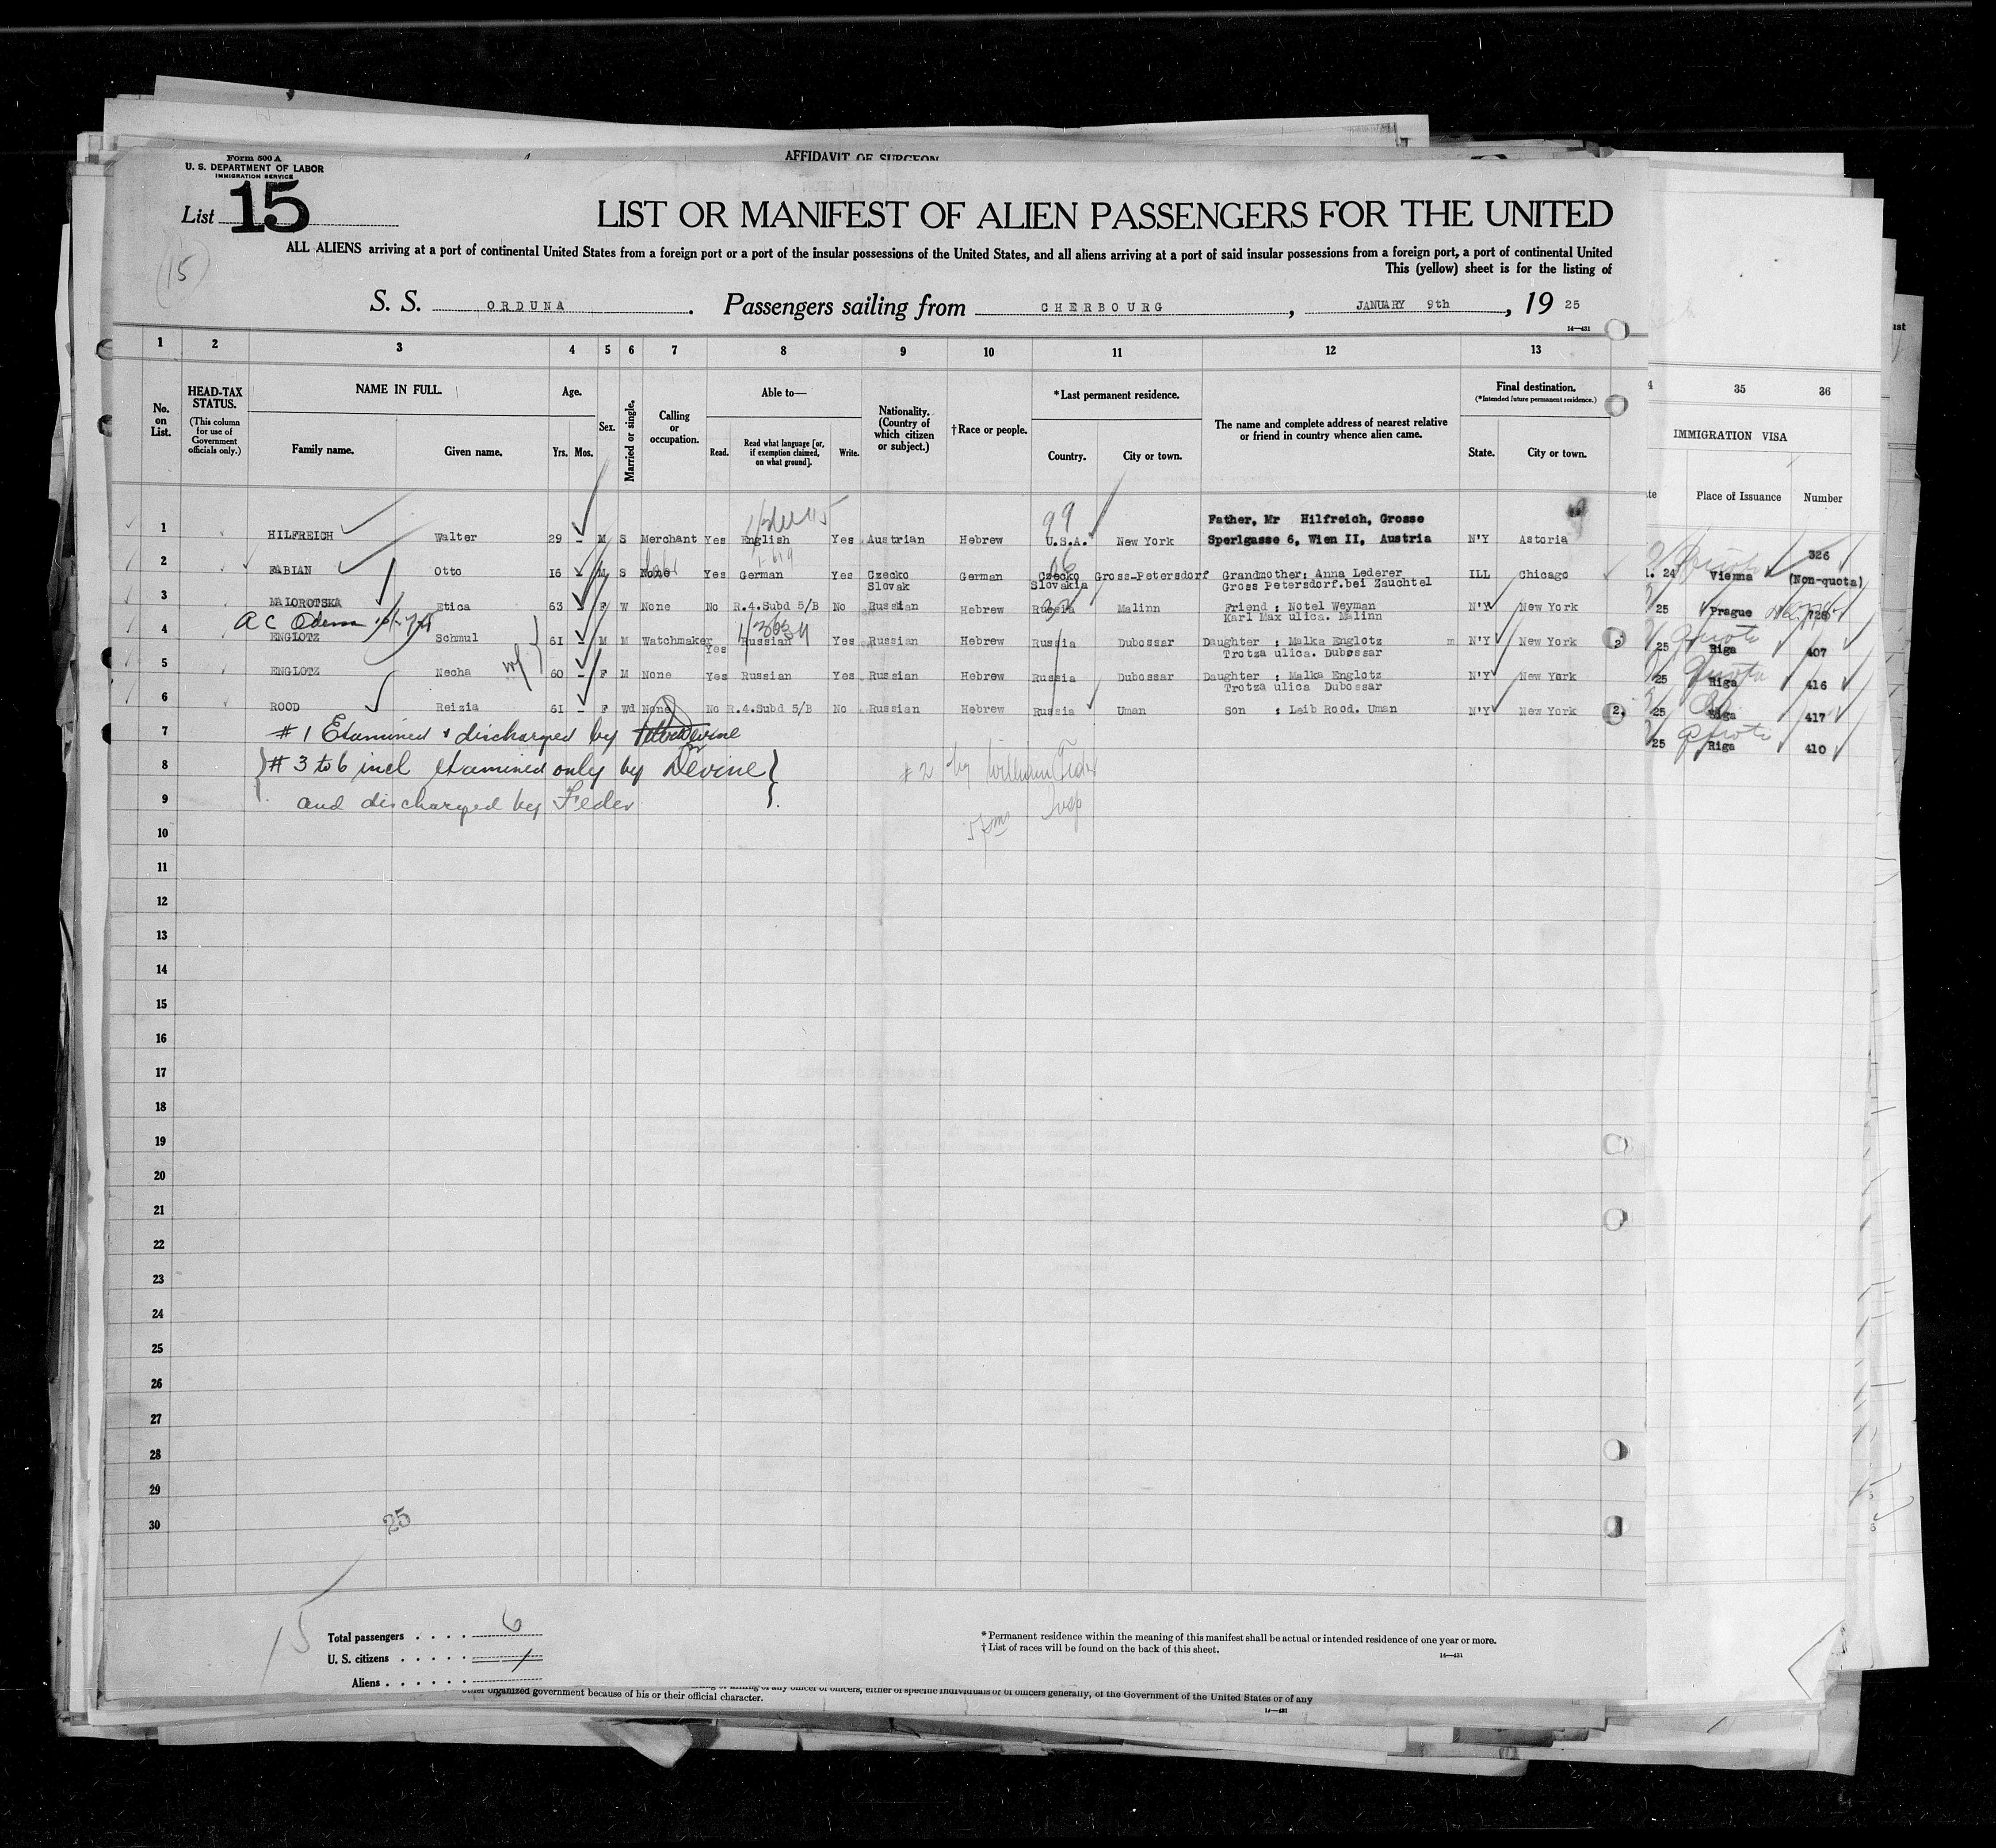 AFFIDAVIT OF SURGEON
Form 500 A
U. S. DEPARTMENT OF LABOR
IMMIGRATION SERVICE
List 15
LIST OR MANIFEST OF ALIEN PASSENGERS FOR THE UNITED
ALL ALIENS arriving at a port of continental United States from a foreign port or a port of the insular possessions of the United States, and all aliens arriving at a port of said insular possessions from a foreign port, a port of continental United
This (yellow) sheet is for the listing of
15
S. S. ORDUNA. Passengers sailing from CHERBOURG, JANUARY 9th, 19 25
14—431
1 2 3 4 5 6 7 8 9 10 11 12 13 35 36
No. on List.
HEAD-TAX STATUS.
(This column for use of Government officials only.)
NAME IN FULL.
Family name. Given name.
Age.
Yrs. Mos.
Sex.
Married or single.
Calling or occupation.
Able to—
Read. Read what language [or, if exemption claimed, on what ground]. Write.
Nationality. (Country of which citizen or subject.)
†Race or people.
*Last permanent residence.
Country. City or town.
The name and complete address of nearest relative or friend in country whence alien came.
Final destination.
(*Intended future permanent residence.)
State. City or town.
IMMIGRATION VISA
Place of Issuance Number
99
1 HILFREICH Walter 29 - M S Merchant Yes English Yes Austrian Hebrew U.S.A. New York Father, Mr Hilfreich, Grosse Sperlgasse 6, Wien II, Austria N'Y Astoria
326
2 FABIAN Otto 16 - M S None Yes German Yes Czecko Slovak German Czecko Slovakia Gross-Petersdorf Grandmother: Anna Lederer Gross Petersdorf.bei Zauchtel ILL Chicago
24 Vienna (Non-quota)
3 MAIOROTSKA Etica 63 - F W None No R.4.Subd 5/B No Russian Hebrew Russia Malinn Friend : Notel Weyman Karl Max ulica. Malinn N'Y New York
25 Prague 726
4 ENGLOTZ Schmul 61 - M M Watchmaker Yes Russian Yes Russian Hebrew Russia Dubossar Daughter : Malka Englotz Trotza ulica. Dubossar m N'Y New York 2
25 Riga 407
5 ENGLOTZ Necha wf 60 - F M None Yes Russian Yes Russian Hebrew Russia Dubossar Daughter : Malka Englotz Trotza ulica Dubossar N'Y New York
25 Riga 416
6 ROOD Reizia 61 - F Wd None No R.4.Subd 5/B No Russian Hebrew Russia Uman Son : Leib Rood. Uman N'Y New York 2.
25 Riga 417
7 #1 Examined & discharged by Devine
25 Riga 410
8 #3 to 6 incl examined only by Devine #2 by William
9 and discharged by Feder Insp
10
11
12
13
14
15
16
17
18
19
20
21
22
23
24
25
26
27
28
29
30
25
15
Total passengers . . . . 6
U. S. citizens . . . . .
Aliens . . . . . .
* Permanent residence within the meaning of this manifest shall be actual or intended residence of one year or more.
† List of races will be found on the back of this sheet.
14—431
other organized government because of his or their official character.
of any officer or officers, either of specific individuals or of officers generally, of the Government of the United States or of any
14—431